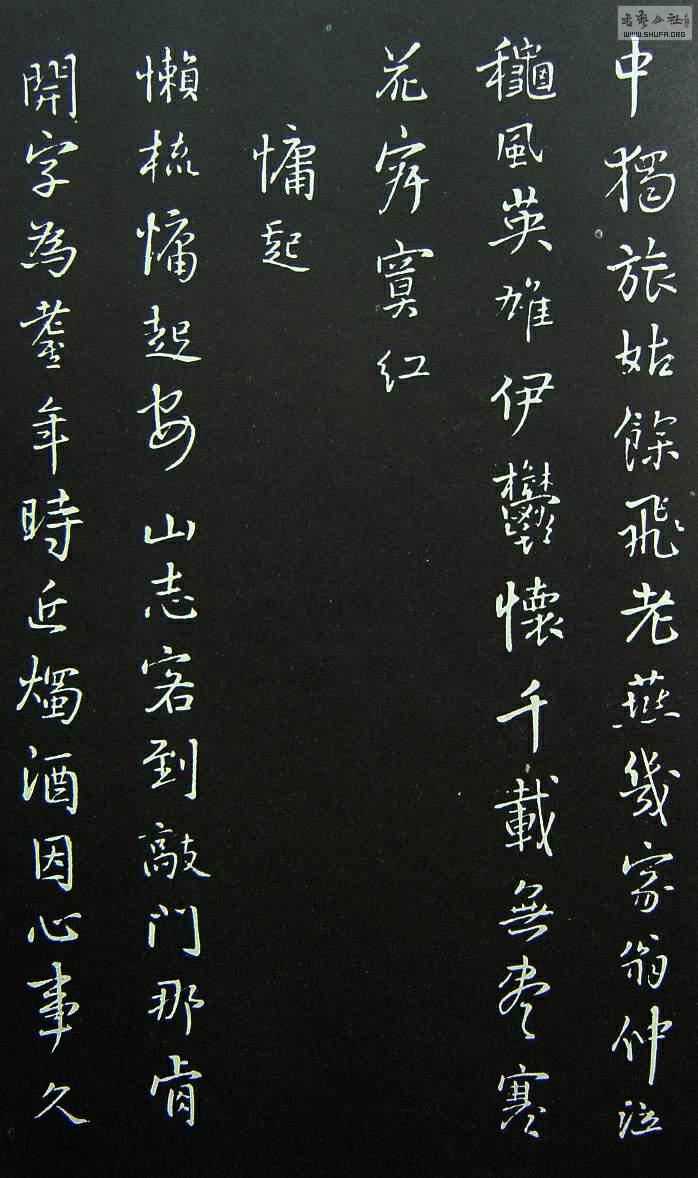 书艺公社
WWW.SHUFA.ORG
中獨旅姑餘飛老燕幾家翁仲泣
龝風英雄伊鬱懷千載無盡寒
花寂寞紅
慵起
懶梳慵起安山志客到敲門那肯
開字為耋年時近燭酒因心事久